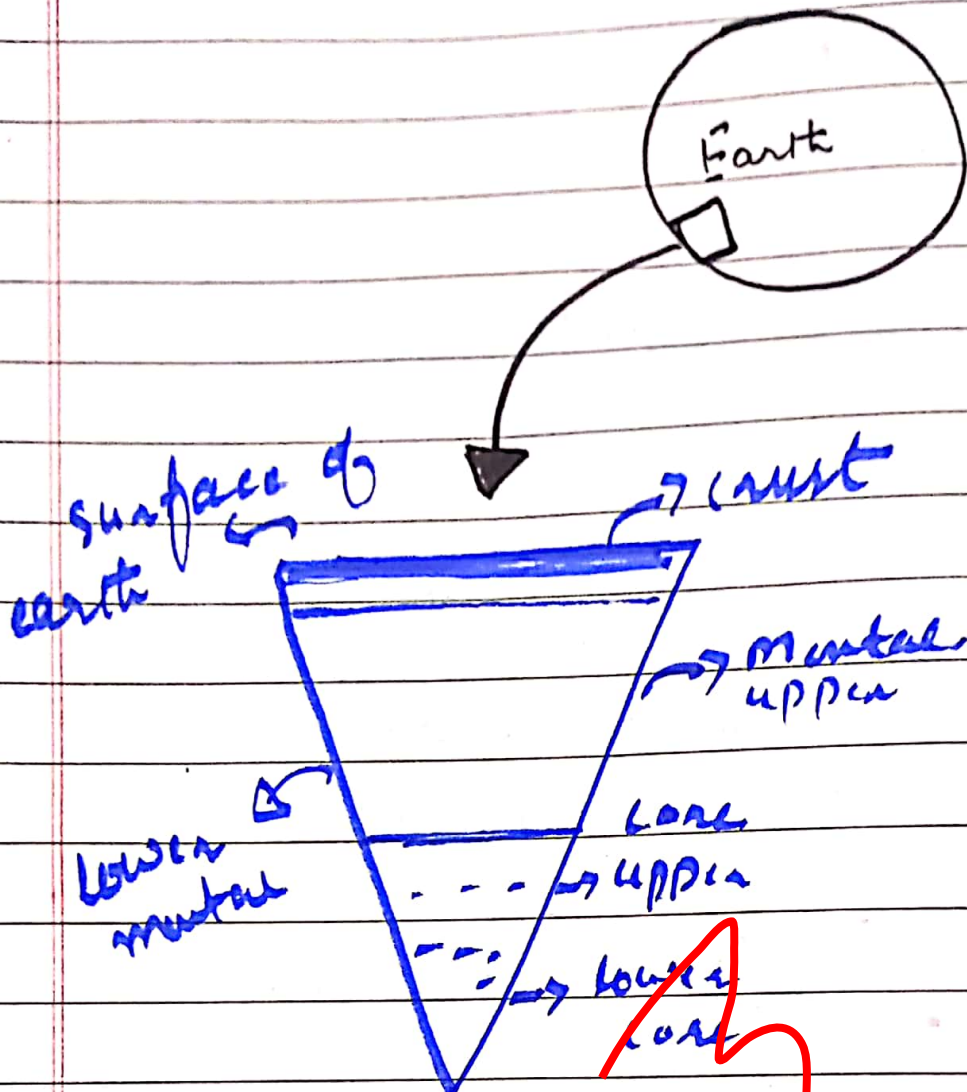 Earth
surface of
earth
crust
Mantal
upper
lower
mantal
core
upper
lower
core